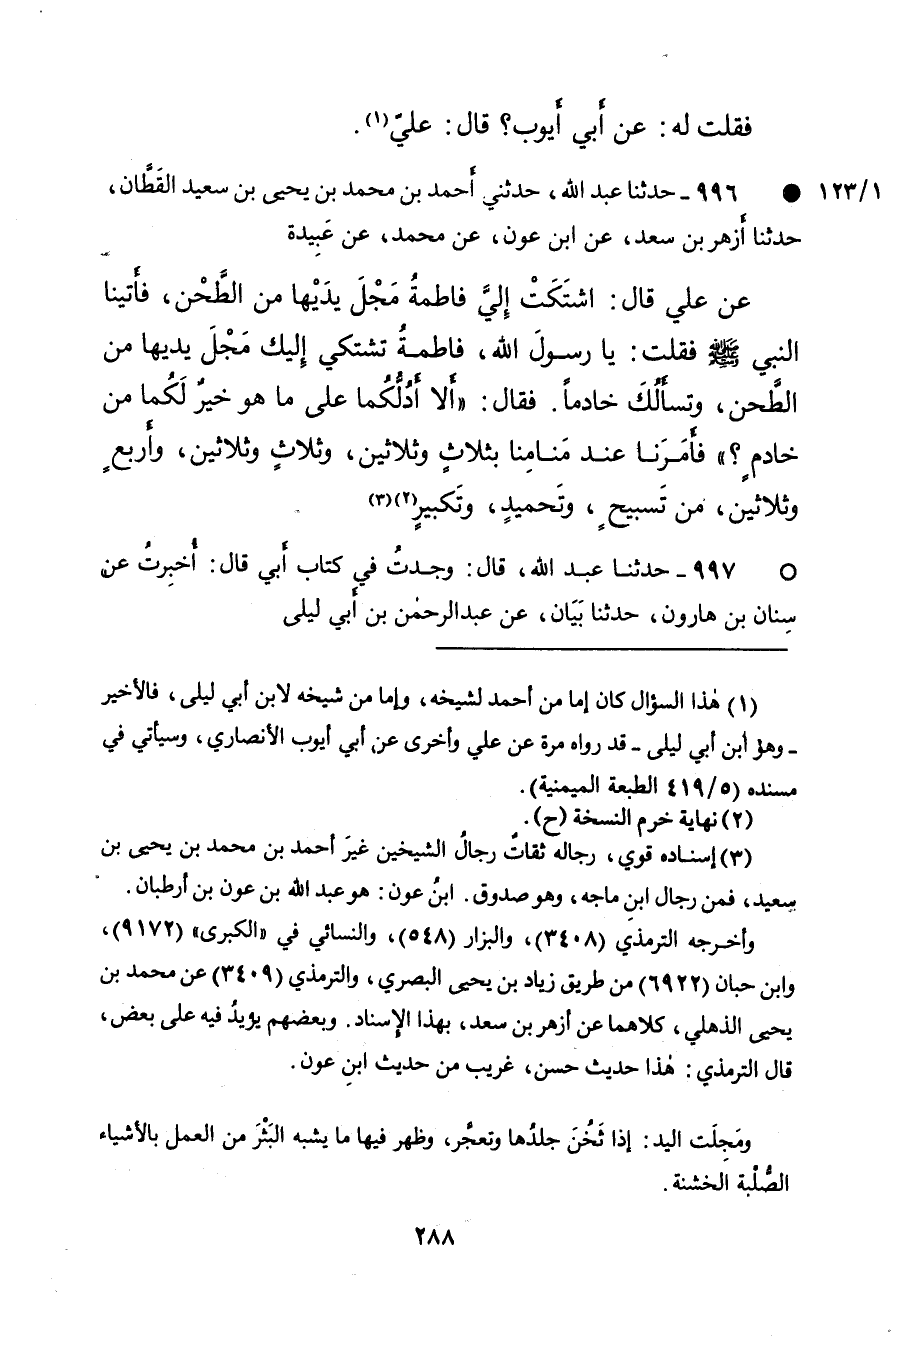 فقلت له: عن أَبي أَيوب؟ قال: عليّ(١).
١٢٣/١ ● ٩٩٦ ـ حدثنا عبد الله، حدثني أَحمد بن محمد بن يحيى بن سعيد القَطَّان،
حدثنا أَزهر بن سعد، عن ابن عون، عن محمد، عن عَبِيدة
عن علي قال: اشتَكَتْ إِليَّ فاطمةُ مَجْلَ يدَيْها من الطَّحْن، فأَتينا
النبي ﷺ فقلت: يا رسولَ الله، فاطمةُ تشتكي إِليك مَجْلَ يديها من
الطَّحن، وتسأَلُكَ خادماً. فقال: «أَلا أَدُلُّكُما على ما هو خيرٌ لَكُما من
خادمٍ؟» فأَمَرَنا عند مَنامِنا بثلاثٍ وثلاثين، وثلاثٍ وثلاثين، وأَربعٍ
وثلاثين، من تَسبيحٍ، وتَحميدٍ، وتَكبيرٍ(٢)(٣)
○ ٩٩٧ ـ حدثنا عبد الله، قال: وجدتُ في كتاب أَبي قال: أُخبِرتُ عن
سِنان بن هارون، حدثنا بَيَان، عن عبدالرحمٰن بن أَبي ليلى
(١) هٰذا السؤال كان إما من أحمد لشيخه، وإما من شيخه لابن أبي ليلى، فالأخير
ـ وهو ابن أبي ليلى ـ قد رواه مرة عن علي وأخرى عن أبي أيوب الأنصاري، وسيأتي في
مسنده (٤١٩/٥ الطبعة الميمنية).
(٢) نهاية خرم النسخة (ح).
(٣) إسناده قوي، رجاله ثقاتٌ رجالُ الشيخين غيرَ أحمد بن محمد بن يحيى بن
سعيد، فمن رجال ابنِ ماجه، وهو صدوق. ابنُ عون: هو عبد الله بن عون بن أرطبان.
وأخرجه الترمذي (٣٤٠٨)، والبزار (٥٤٨)، والنسائي في «الكبرى» (٩١٧٢)،
وابن حبان (٦٩٢٢) من طريق زياد بن يحيى البصري، والترمذي (٣٤٠٩) عن محمد بن
يحيى الذهلي، كلاهما عن أزهر بن سعد، بهذا الإسناد. وبعضهم يزيدُ فيه على بعض،
قال الترمذي: هٰذا حديث حسن، غريب من حديث ابنِ عون.
ومَجِلَت اليد: إذا ثَخُنَ جلدُها وتعجَّر، وظهر فيها ما يشبه البَثْرَ من العمل بالأشياء
الصُّلْبة الخشنة.
٢٨٨